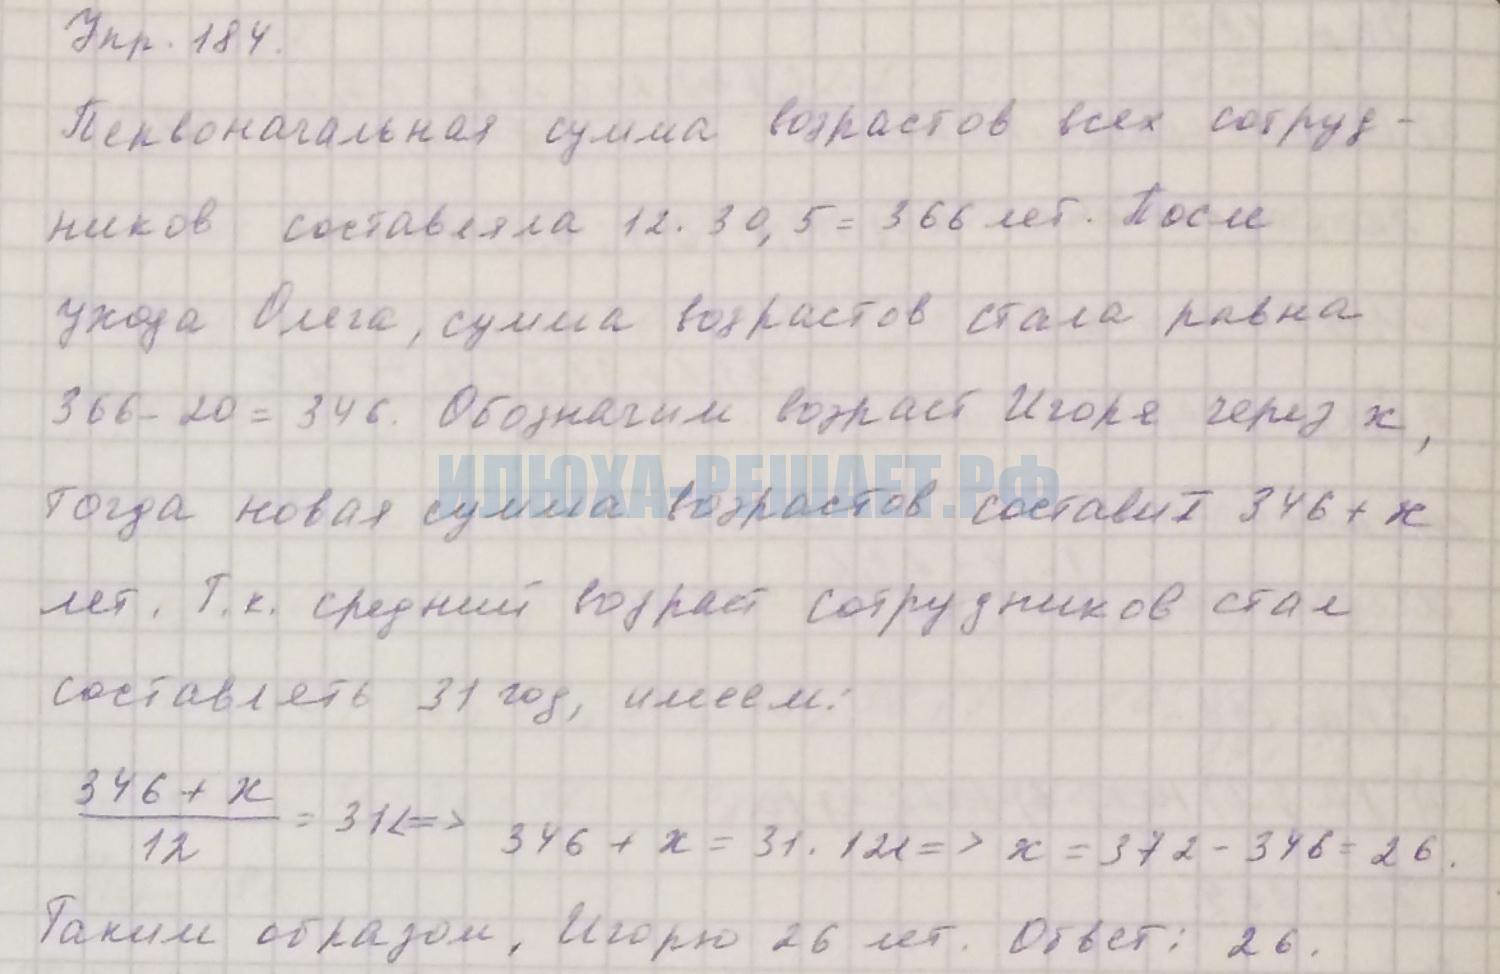 Упр. 184.
Первоначальная сумма возрастов всех сотруд-
ников составляла 12. 30,5 = 366 лет. После
ухода Олега, сумма возрастов стала равна
366 - 20 = 346. Обозначим возраст Игоря через x,
ИЛЮХА-РЕШАЕТ.РФ
тогда новая сумма возрастов составит 346 + x
лет. Т.к. средний возраст сотрудников стал
составлять 31 год, имеем:
(346 + x)/12 = 31 <=> 346 + x = 31. 12 <=> x = 372 - 346 = 26.
Таким образом, Игорю 26 лет. Ответ: 26.